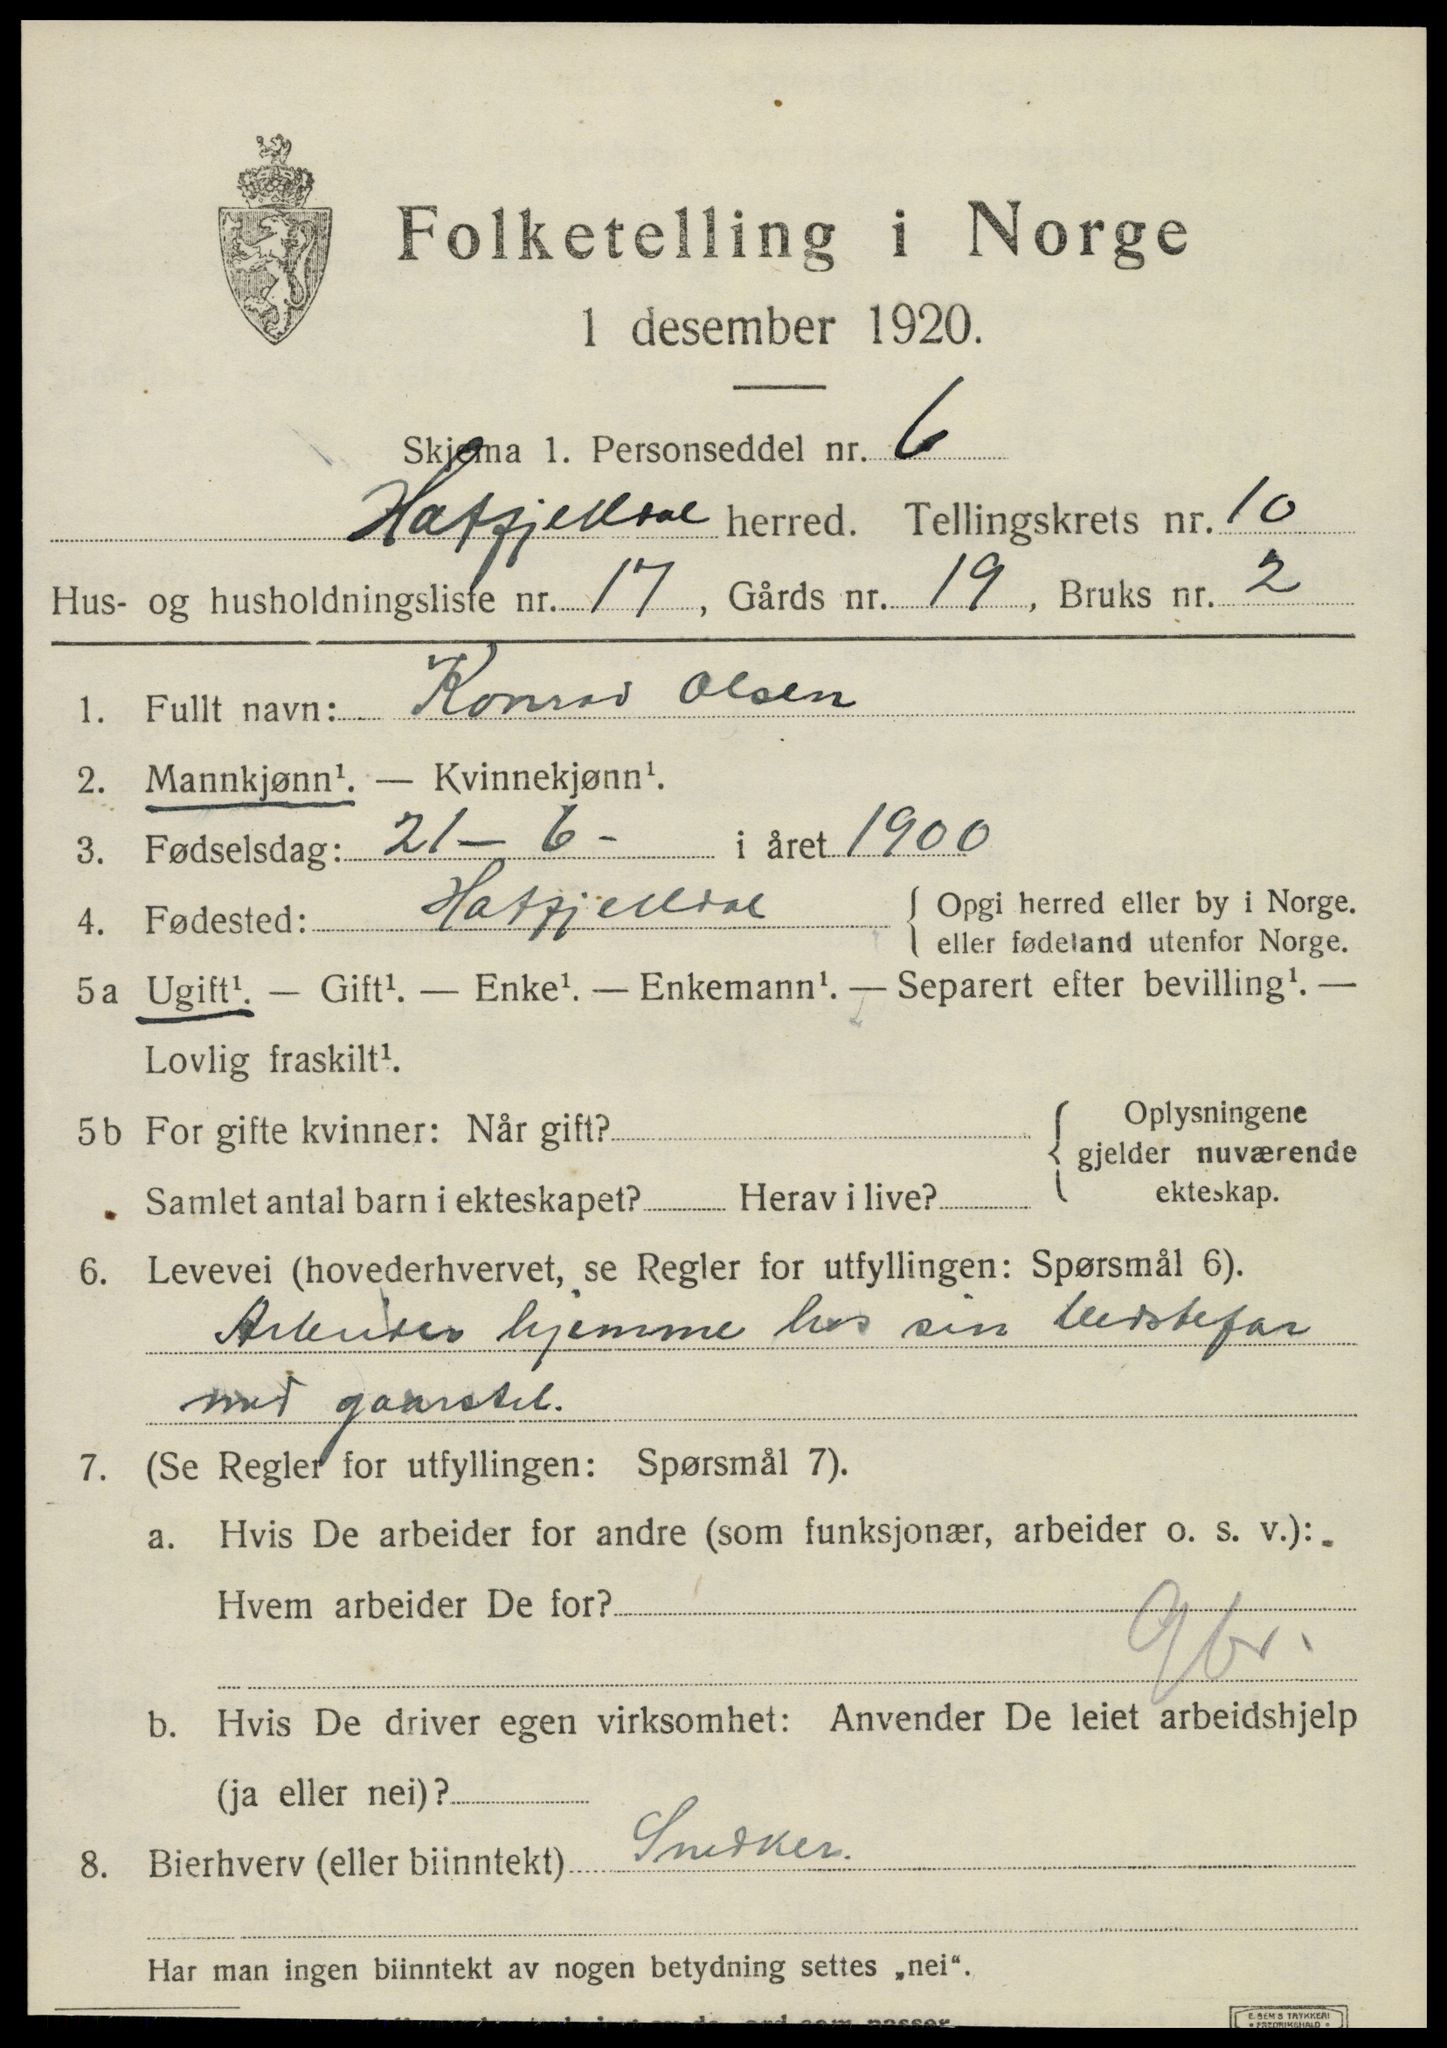 Folketelling i Norge
1 desember 1920.
Skjema 1. Personseddel nr. 6
Hatfjelldal herred. Tellingskrets nr. 10
Hus- og husholdningsliste nr. 17, Gårds nr. 19, Bruks nr. 2
1. Fullt navn: Konrad Olsen
2. Mannkjønn¹. — Kvinnekjønn¹.
3. Fødselsdag: 21 – 6 – i året 1900
4. Fødested: Hatfjelldal { Opgi herred eller by i Norge.
eller fødeland utenfor Norge.
5a Ugift¹. — Gift¹. — Enke¹. — Enkemann¹. — Separert efter bevilling¹. —
Lovlig fraskilt¹.
5b For gifte kvinner: Når gift? { Oplysningene
gjelder nuværende
ekteskap.
Samlet antal barn i ekteskapet? Herav i live?
6. Levevei (hovederhvervet, se Regler for utfyllingen: Spørsmål 6).
Arbeider hjemme hos sin bedstefar
med gaarstel.
7. (Se Regler for utfyllingen: Spørsmål 7).
a. Hvis De arbeider for andre (som funksjonær, arbeider o. s. v.):
Hvem arbeider De for?
Gbr.
b. Hvis De driver egen virksomhet: Anvender De leiet arbeidshjelp
(ja eller nei)?
8. Bierhverv (eller biinntekt) Snedker.
Har man ingen biinntekt av nogen betydning settes „nei“.
E. SEM'S TRYKKERI
FREDRIKSHALD